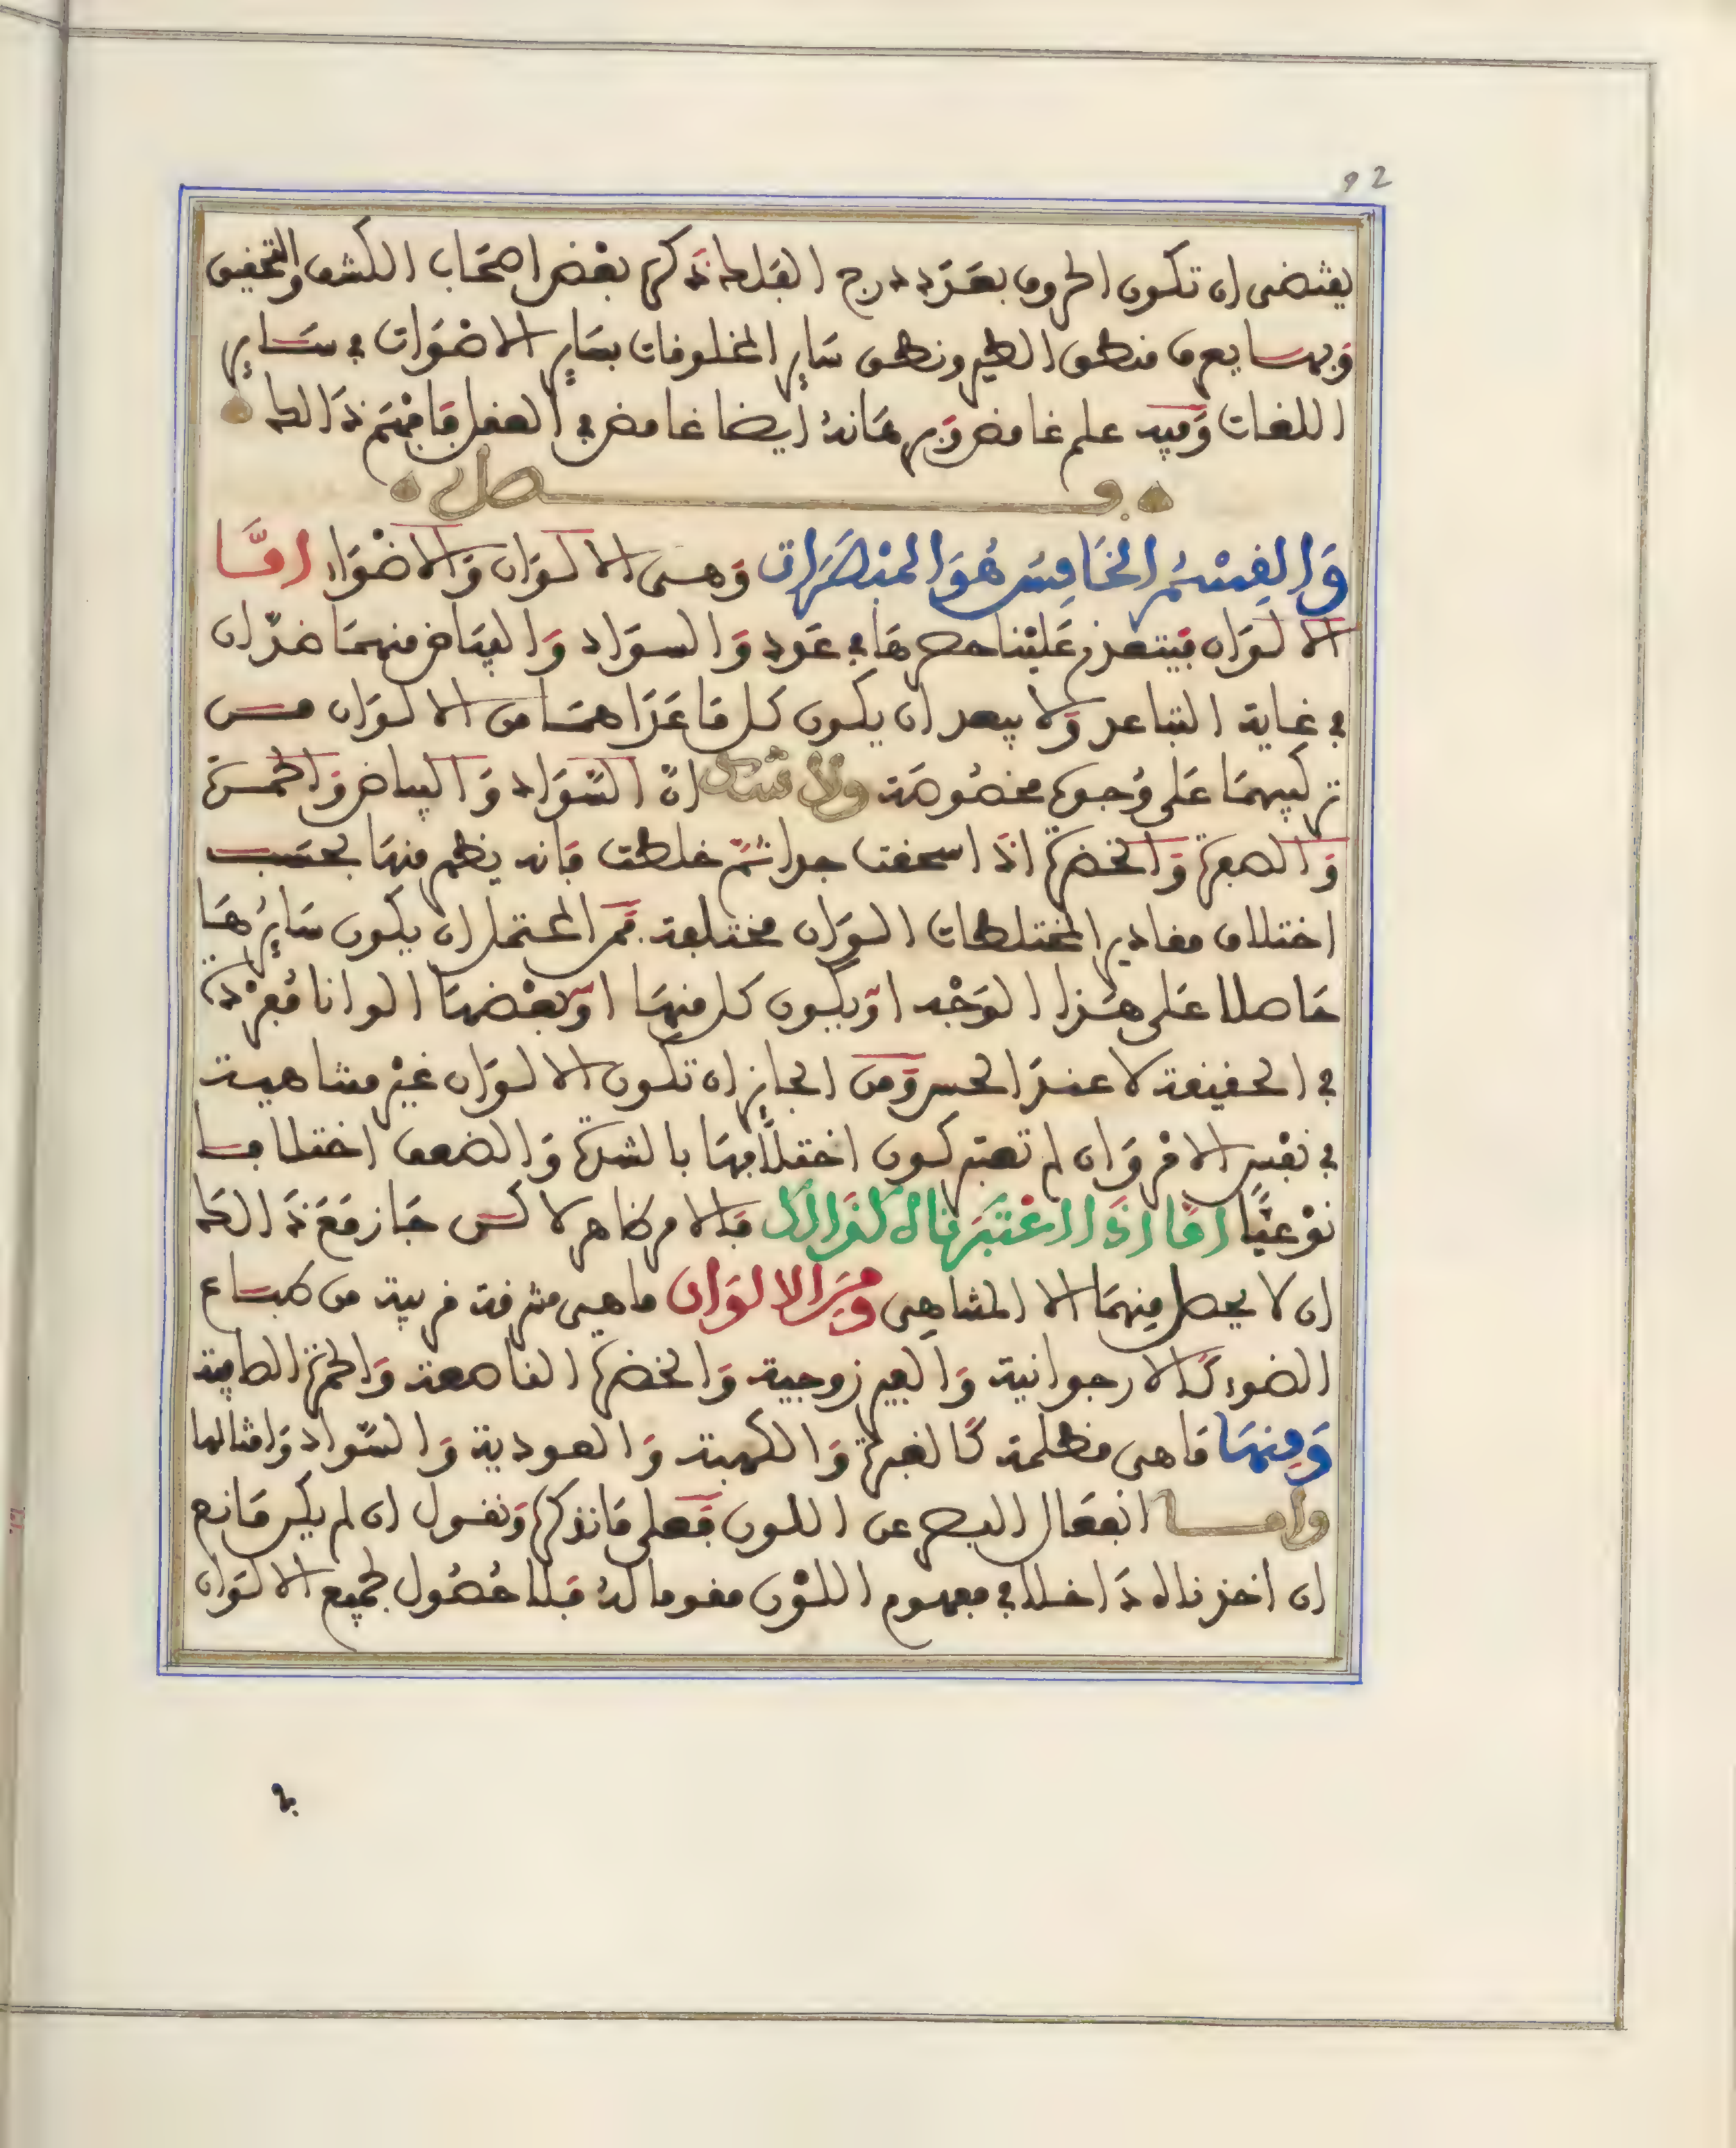 92
يقتضى ان تكون الحروف بعدد درج الفلك ذكره بعض اصحاب الكشف والتحقيق
وبهما يعرف منطق الطير ونطق ساير المخلوقات بساير الاصوات في ساير
اللغات وفيه علم غامض وبرهانه ايضا غامض في العقل فافهم ذالك
فصل
وَالقِسْمُ الخَامِسُ هُوَ المُبْصَرَات وهى الالوان والاضواء امَّا
الالوان فيتعذر علينا حصرها في عدد والسواد والبياض منهما ضدّان
في غاية التباعد ولا يبعد ان يكون كل ما عداهما من الالوان من
تركيبهما على وجوه مخصوصة ولا شك انّ السّواد والبياض والحمرة
والصفرة والخضرة اذا اسحقت جدا ثمّ خلطت فانه يظهر منها بحسب
اختلاف مقادير المختلطات الوان مختلفة فمن المحتمل ان يكون سايرها
حاصلا على هذا الوجه او يكون كل منها او بعضها الوانا مفردة
في الحقيقة لا عند الحس ومن الجايز ان تكون الالوان غير متناهية
في نفس الامر وان لم تعتبر كون اختلافها بالشدة والضعف اختلافا
نوعيًّا امّا اذا اعتبرناه كذالك فالامر ظاهر لاكن جاز مع ذالك
ان لا يحصل منهما الا المتناهى ومن الالوان ما هي مشرقة قريبة من طباع
الضوء كالارجوانية والفيروزجية والخضرة الناصعة والحمرة الصافية
ومنها ما هى مظلمة كالغبرة والكهبة والعودية والسّواد وامثالها
وامـا انفعال البصر عن اللون فعلى ما نذكره ونقول ان لم يكن مانع
ان اخذناه داخلا في مفهوم اللّون مقوما له فلا حصول لجميع الالوان